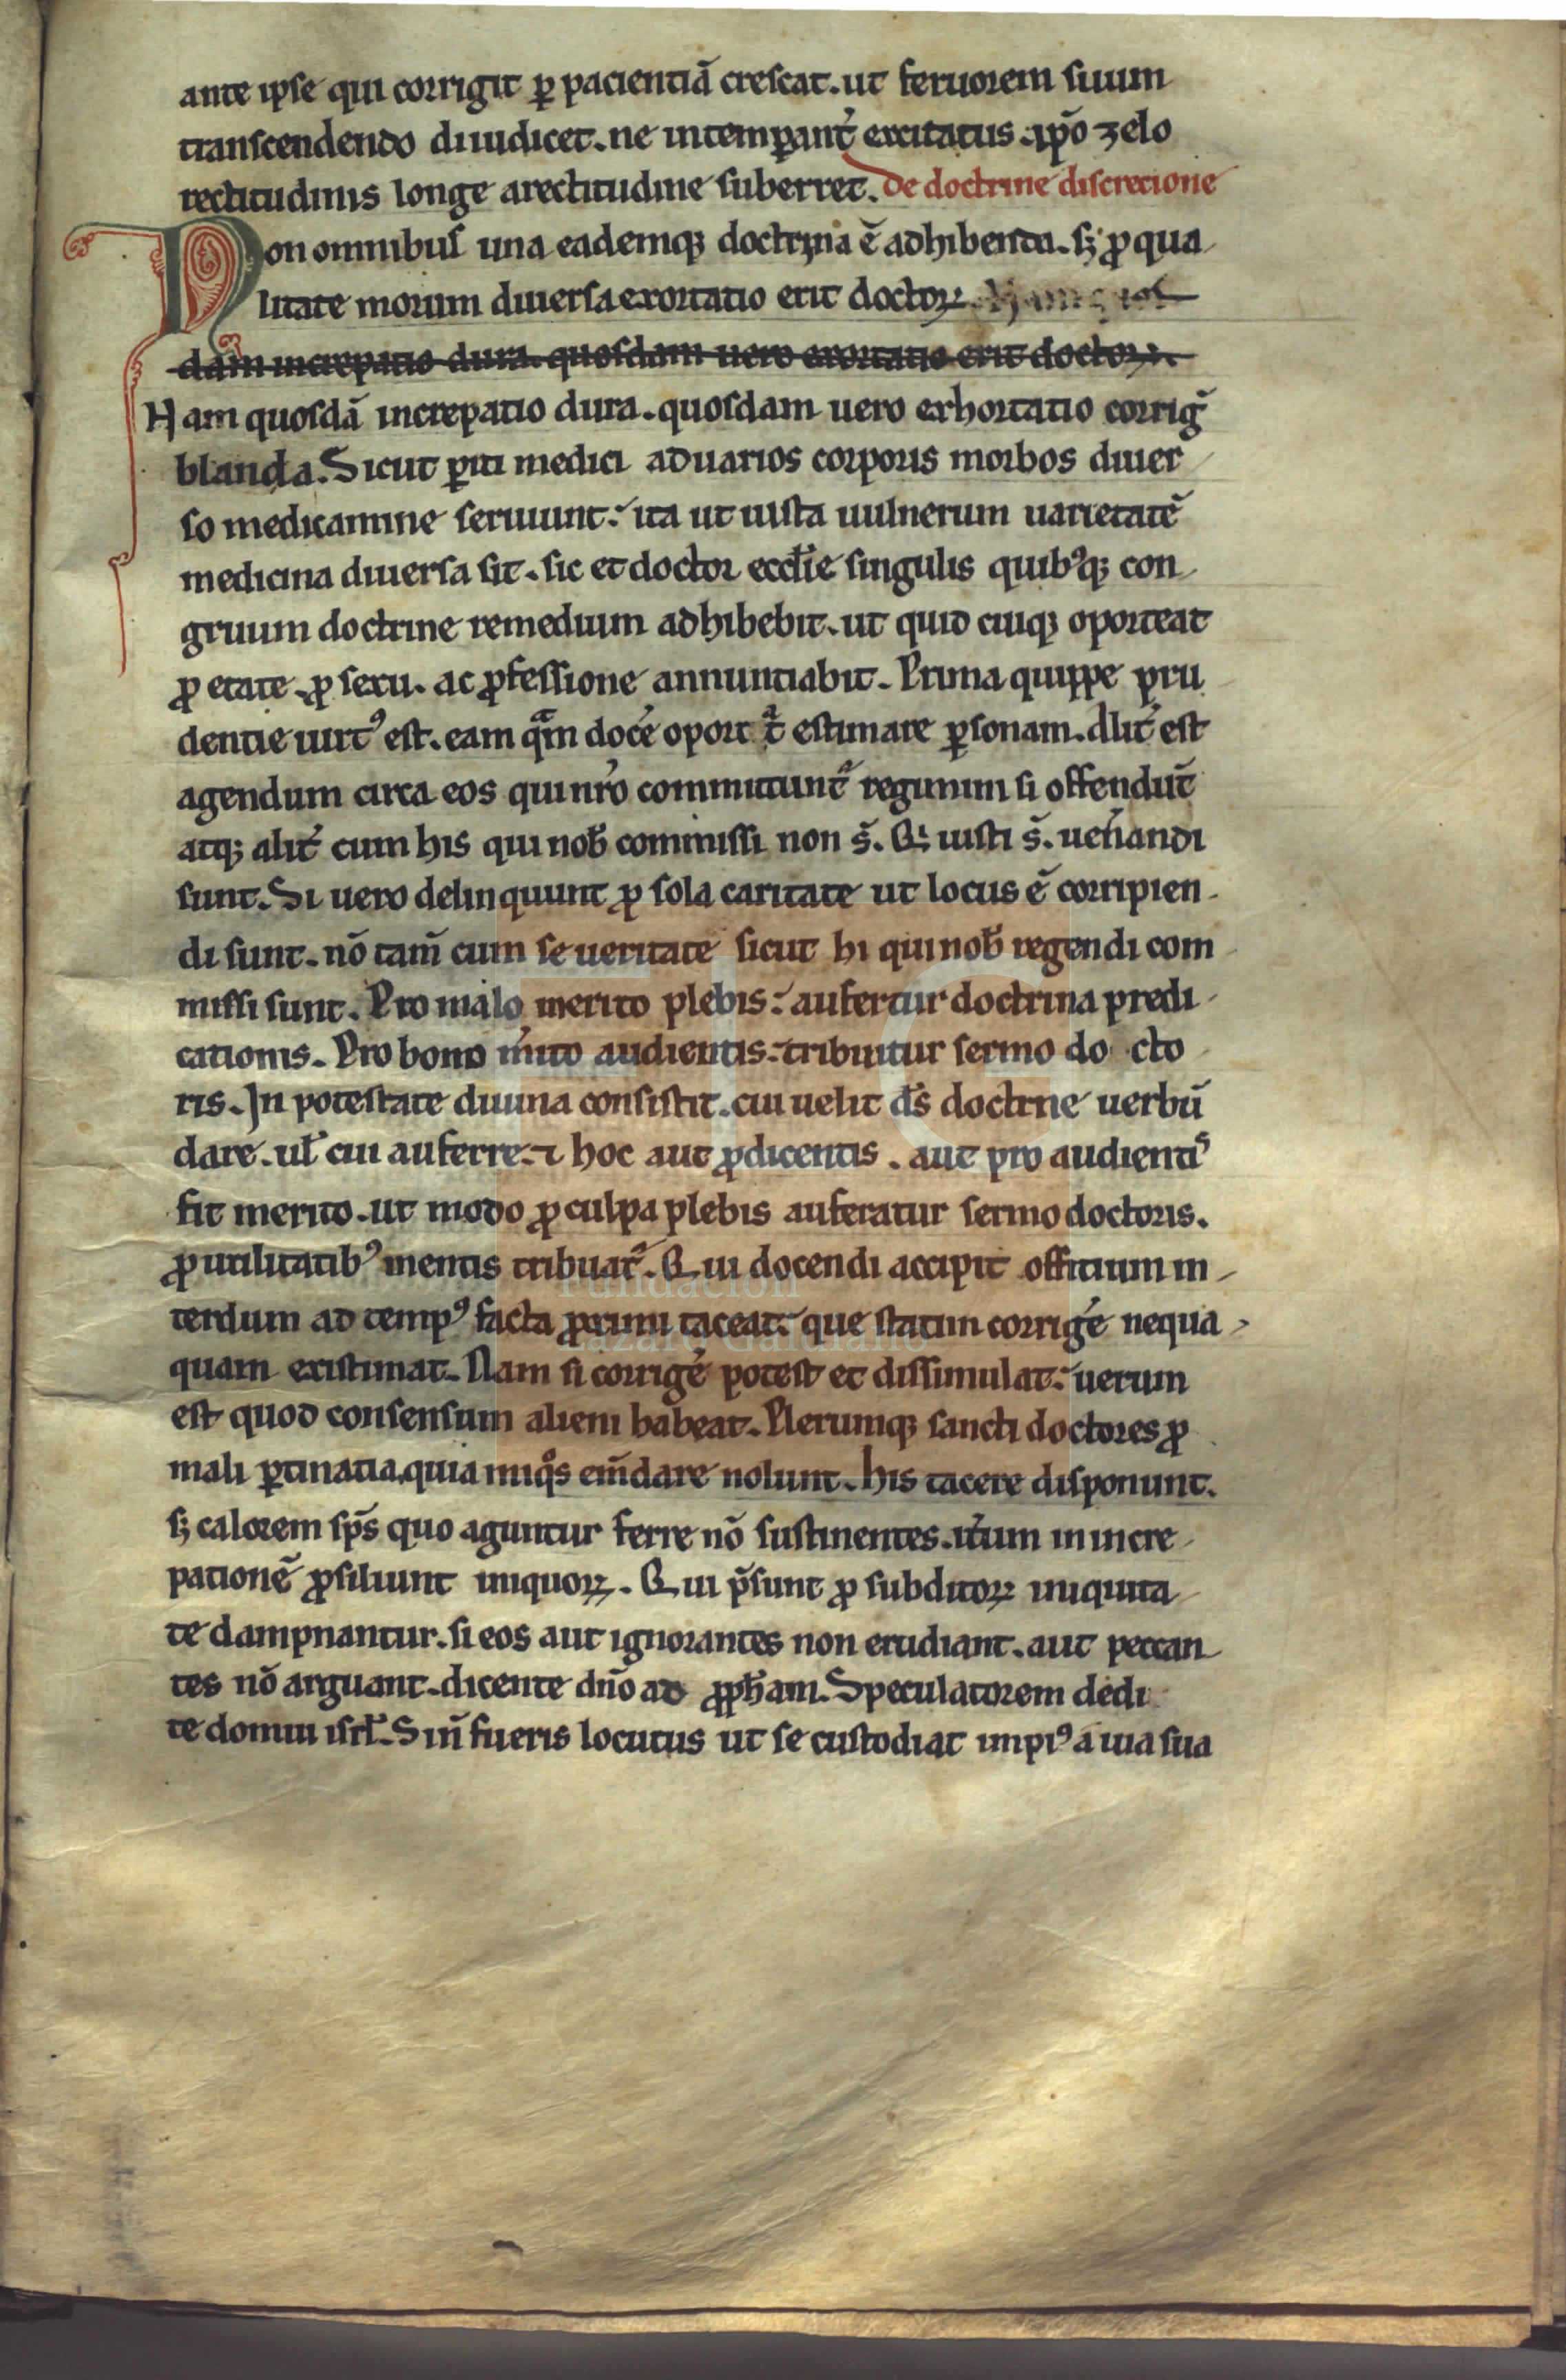 ante ipse qui corrigit ꝑ pacientiā crescat. ut feruorem suum
transcendendo diiudicet. ne intemꝑant᷑ excitatus. ipō zelo
rectitudinis longe arectitudine suberret. De doctrine discrecione
Non omnibus una eademqꝫ doctrina ē adhibenda. sꝫ ꝓ qua
litate morum diuersa exortatio erit doctoꝝ.
dam increpatio dura. quosdam uero exortatio erit doctoꝝ.
Nam quosdā increpatio dura. quosdam uero exhortatio corrig̃
blanda. Sicut ꝑiti medici aduarios corporis morbos diuer
so medicamine seruiunt: ita ut iuxta uulnerum uarietatē
medicina diuersa sit. sic et doctor eccłie singulis quibꝰqꝫ con
gruum doctrine remedium adhibebit. ut quid cuiqꝫ oporteat
ꝓ etate. ꝓ sexu. ac ꝓfessione annuntiabit. Prima quippe pru
dentie uirtꝰ est. eam quā doce᷑ oport& estimare ꝑsonam. Alit᷑ est
agendum circa eos qui nr̄o committunt᷑ regimini si offendūt
atqꝫ alit᷑ cum his qui nob̄ commissi non s̄. Qi iusti s̄. uen᷑andi
sunt. Si uero delinquunt ꝓ sola caritate ut locus ē corripien
di sunt. nō tam̄ cum seueritate sicut hi qui nob̄ regendi com
missi sunt. Pro malo merito plebis: aufertur doctrina predi
cationis. Pro bono m᷑ito audientis: tribuitur sermo docto
ris. In potestate diuina consistit. cui uelit ds̄ doctrine uerbū
dare. ul̄ cui auferre. ⁊ hoc aut ꝓ dicentis. aut pro audientis
fit merito. ut modo ꝓ culpa plebis auferatur sermo doctoris.
ꝓ utilitatibꝰ mentis tribuat᷑. Qui docendi accipit offitium in
terdum ad tempꝰ facta ꝓximi taceat: que statim corrige᷑ nequa
quam existimat. Nam si corrige᷑ potest et dissimulat: uerum
est quod consensum alieni habeat. Plerumqꝫ sancti doctores ꝓ
mali ꝑtinatia. quia iniqͦs em̄dare nolunt. his tacere disponunt.
sꝫ calorem sp̄s quo aguntur ferre nō sustinentes. it᷑um in incre
pationē ꝓsiliunt iniquoꝝ. Qui p̄sunt ꝓ subditoꝝ iniquita
te dampnantur. si eos aut ignorantes non erudiant. aut peccan
tes nō arguant. dicente dn̄o ad ꝓph̄am. Speculatorem dedi
te domui isrł. Si n̄ fueris locutus ut se custodiat impiꝰ a uia sua
Fundación
Lázaro Galdiano